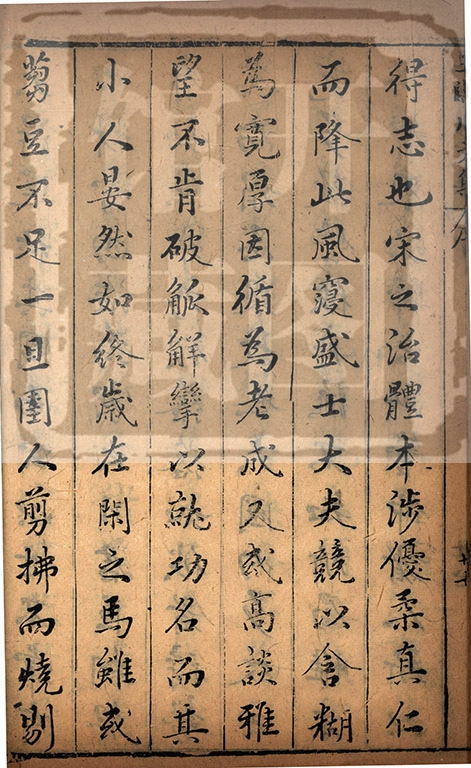 得志也宋之治體本涉優柔真仁
而降此風寖盛士大夫競以含糊
為寬厚因循為老成又或高談雅
望不肯破觚解攣以就功名而其
小人晏然如終歲在閑之馬雖或
蒭豆不足一旦圉人剪拂而燒剔